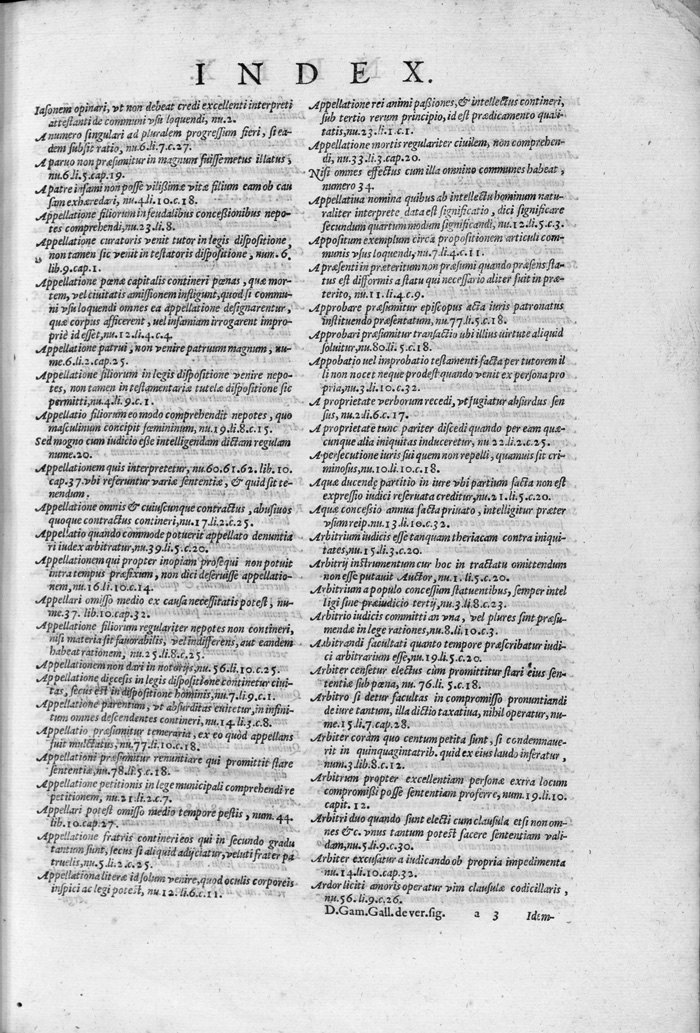 INDEX.
Iasonem opinari, vt non debeat credi excellenti interpreti
attestanti de communi vsu loquendi, nu.2.
A numero singulari ad pluralem progressum fieri, si ea-
dem subsit ratio, nu.6.li.7.c.27.
A paruo non præsumitur in magnum fuisse metus illatus,
nu.6.li.5.cap.19.
A patre infami non posse vilissimæ vitæ filium eam ob cau
sam exhæredari, nu.4.li.10.c.18.
Appellatione filiorum in feudalibus concessionibus nepo-
tes comprehendi, nu.23.l.8.
Appellatione curatoris venit tutor in legis dispositione,
non tamen sic venit in testatoris dispositione, num.6.
lib.9.cap.1.
Appellatione pœnæ capitalis contineri pœnas, quæ mor-
tem, vel ciuitatis amissionem infligunt, quod si commu-
ni vsu loquendi omnes ea appellatione designarentur,
quæ corpus afficerent, vel infamiam irrogarent impro-
priè id esset, nu.12.li.4.c.4.
Appellatione patrui, non venire patruum magnum, nu-
me.6.li.2.cap.25.
Appellatione filiorum in legis dispositione venire nepo-
tes, non tamen in testamentariæ tutelæ dispositione sic
permitti, nu.4.li.9.c.1.
Appellatio filiorum eo modo comprehendit nepotes, quo
masculinum concipit fœmininum, nu.19.li.8.c.15.
Sed mogno cum iudicio esse intelligendam dictam regulam
nume.20.
Appellationem quis interpretetur, nu.60.61.62. lib.10.
cap.37. vbi referuntur variæ sententiæ, & quid sit te-
nendum.
Appellatione omnis & cuiuscunque contractus, abusiuos
quoque contractus contineri, nu.17.li.2.c.25.
Appellatio quando commode potuerit appellato denuntia
ri iudex arbitratur, nu.39.li.5.c.20.
Appellationem qui propter inopiam prosequi non potuit
intra tempus præfixum, non dici deseruisse appellatio-
nem, nu.16.li.10.c.14.
Appellari omisso medio ex causa necessitatis potest, nu-
me.37. lib.10.cap.32.
Appellatione filiorum regulariter nepotes non contineri,
nisi materia sit fauorabilis, vel indifferens, aut eandem
habeat rationem, nu.25.li.8.c.25.
Appellationem non dari in notorijs, nu.56.li.10.c.25.
Appellatione diœcesis in legis dispositione continetur ciui-
tas, secus est in dispositione hominis, nu.7.li.9.c.1.
Appellatione parentum, vt absurditas euitetur, in infini-
tum omnes descendentes contineri, nu.14.li.3.c.8.
Appellatio præsumitur temeraria, ex eo quòd appellans
fuit mulctatus, nu.77.li.10.c.18.
Appellationi præsumitur renuntiare qui promittit stare
sententiæ, nu.78.li.5.c.18.
Appellatione petitionis in lege municipali comprehendi re
petitionem, nu.21.li.2.c.7.
Appellari potest omisso medio tempore pestis, num.44.
lib.10.cap.27.
Appellatione fratris contineri eos qui in secundo gradu
tantum sunt, secus si aliquid adijciatur, veluti frater pa
truelis, nu.5.li.2.c.25.
Appellationa literæ id solum venire, quod oculis corporeis
inspici ac legi potest, nu 12.li.6.c.11.
Appellatione rei animi passiones, & intellectus contineri,
sub tertio rerum principio, id est prædicamento quali-
tatis, nu.23.li.1.c.1.
Appellatione mortis regulariter ciuilem, non comprehen-
di, nu.33.li.3.cap.20.
Nisi omnes effectus cum illa omnino communes habeat,
numero 34.
Appellatiua nomina quibus ab intellectu hominum natu-
raliter interprete data est significatio, dici significare
secundum quartum modum significandi, nu.12.li.5.c.3.
Appositum exemplum circa propositionem articuli com-
munis vsus loquendi, nu.7.li.4.c.11.
A præsenti in præteritum non præsumi quando præsens sta-
tus est difformis a statu qui necessario aliter fuit in præ-
terito, nu.11.li.4.c.9.
Approbare præsumitur episcopus acta iuris patronatus
instituendo præsentatum, nu.77.li.5.c.18.
Approbari præsumitur transactio vbi illius virtute aliquid
soluitur, nu.80.li.5.c.18.
Approbatio vel improbatio testamenti facta per tutorem il
li non nocet neque prodest quando venit ex persona pro
pria, nu.3.li.10.c.32.
A proprietate verborum recedi, vt fugiatur absurdus sen
sus, nu.2.li.6.c.17.
A proprietate tunc pariter discedi quando per eam quæ-
cunque alia iniquitas induceretur, nu 22.li.2.c.25.
A persecutione iuris sui quem non repelli, quamuis sit cri-
minosus, nu.10.li.10.c.18.
Aquæ ducendæ partitio in iure vbi partium facta non est
expressio iudici reseruata creditur, nu.21.li.5.c.20.
Aquæ concessio annua facta priuato, intelligitur præter
vsum reip. nu.13.li.10.c.32.
Arbitrium iudicis esse tanquam theriacam contra iniqui-
tates, nu.15.li.3.c.20.
Arbitrij instrumentum cur hoc in tractatu omittendum
non esse putauit Auctor, nu.1.li.5.c.20.
Arbitrium a populo concessum statuentibus, semper intel
ligi sine præiudicio tertij, nu.3.li.8.c.23.
Arbitrio iudicis committi an vna, vel plures sint præsu-
mendæ in lege rationes, nu.8.li.10.c.3.
Arbitrandi facultati quanto tempore præscribatur iudi-
ci arbitrarium esse, nu.19.li.5.c.20.
Arbiter censetur electus cùm promittitur stari eius sen-
tentiæ sub pœna, nu.76.li.5.c.18.
Arbitro si detur facultas in compromisso pronuntiandi
de iure tantum, illa dictio taxatiua, nihil operatur, nu-
me.15.li.7.cap.28.
Arbiter coram quo centum petita sunt, si condemnaue-
rit in quinquaginta trib. quid ex eius laudo inferatur,
num.3.lib.8.c.12.
Arbitrum propter excellentiam personæ extra locum
compromissi posse sententiam proferre, num.19.li.10.
capit.12.
Arbitri duo quando sunt electi cum clausula etsi non om-
nes &c. vnus tantum potest facere sententiam vali-
dam, nu.5.li.9.c.30.
Arbiter excusatur a iudicando ob propria impedimenta
nu.14.li.10.cap.32.
Ardor liciti amoris operatur vim clausulæ codicillaris,
nu.56.li.9.c.26.
D.Gam.Gall.de ver.sig. a 3 Idem-